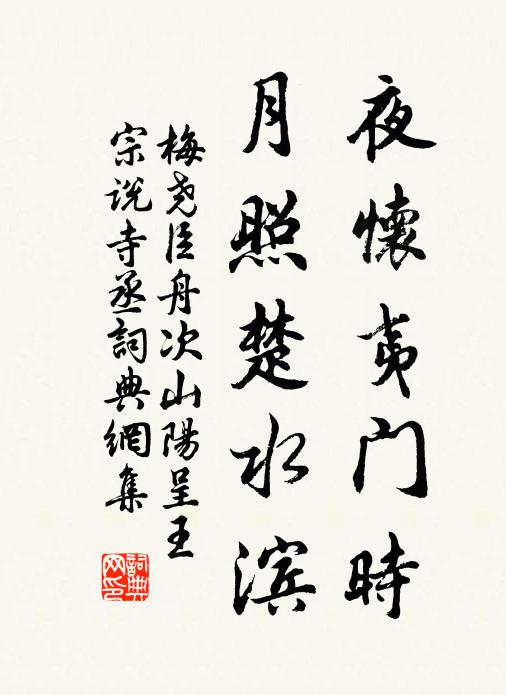 夜懷夷门時
月照楚水滨
梅尧臣舟次山陽呈王
宗说寺丞詞典網集
詞典
网印